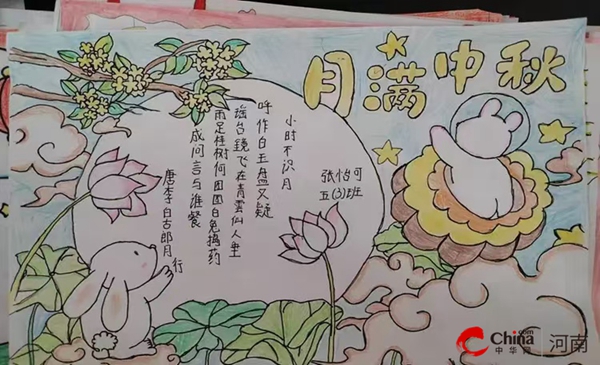 月满中秋
张怡可
五(3)班
小时不识月
呼作白玉盘又疑
瑶台镜飞在青雲仙人垂
雨足桂树何团团白兔捣药
成问言与谁餐
唐李白古郎月行
China.com
中华网
河南